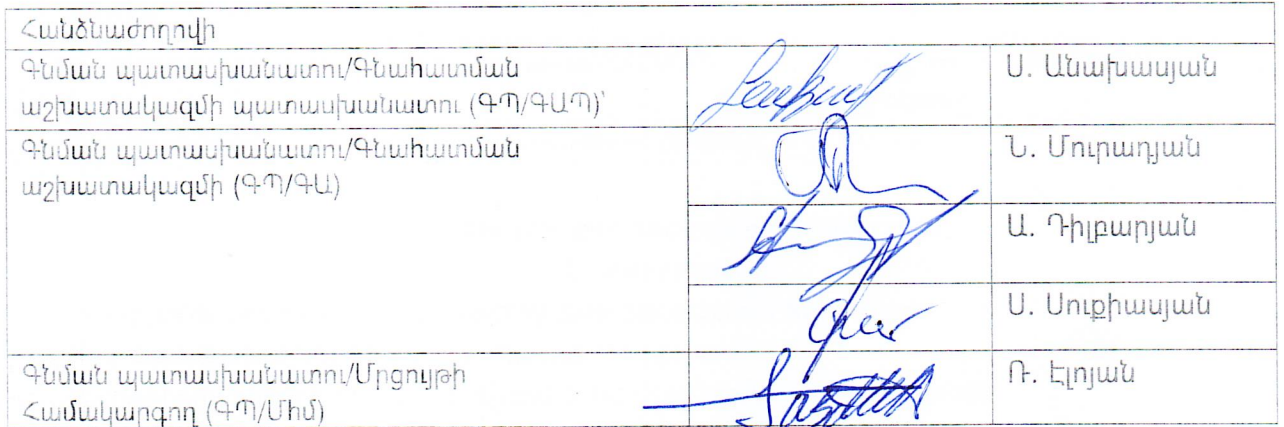 Հանձնաժողովի
Գնման պատասխանատու/Գնահատման
աշխատակազմի պատասխանատու (ԳՊ/ԳԱՊ)՝
Ս. Անախասյան
Գնման պատասխանատու/Գնահատման
աշխատակազմի (ԳՊ/ԳԱ)
Ն. Մուրադյան
Ա. Դիլբարյան
Ս. Սուքիասյան
Գնման պատասխանատու/Մրցույթի
Համակարգող (ԳՊ/Միմ)
Ռ. Էլոյան